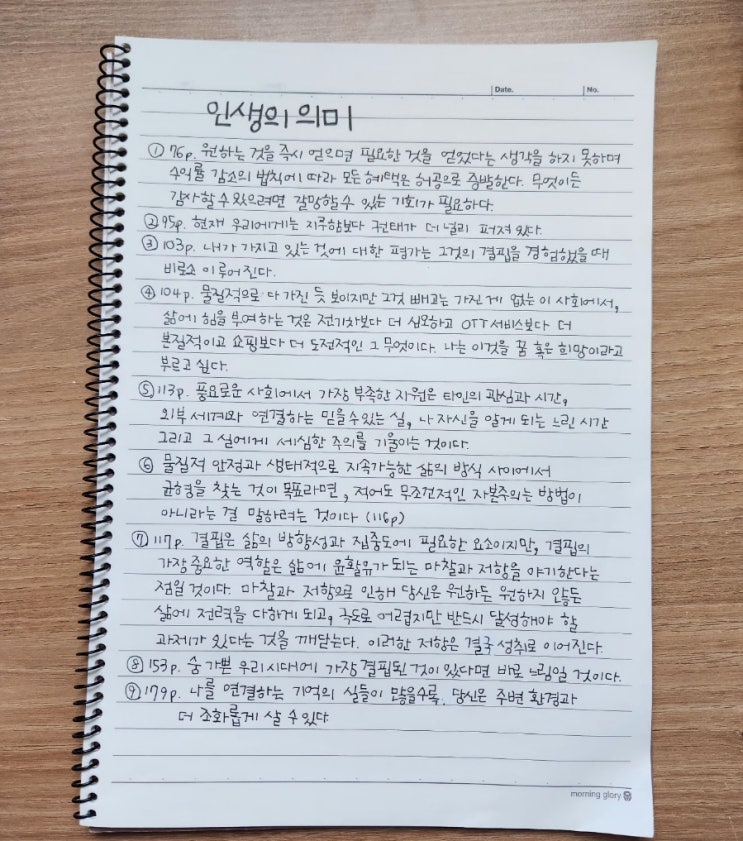 Date.
No.
인생의 의미
① 76p. 원하는 것을 즉시 얻으면 필요한 것을 얻었다는 생각을 하지 못하며
수익률 감소의 법칙에 따라 모든 혜택은 허공으로 증발한다. 무엇이든
감사할 수 있으려면 갈망할 수 있는 기회가 필요하다.
② 95p. 현재 우리에게는 지루함보다 권태가 더 널리 퍼져 있다.
③ 103p. 내가 가지고 있는 것에 대한 평가는 그것의 결핍을 경험했을 때
비로소 이루어진다.
④ 104p. 물질적으로 다 가진 듯 보이지만 그것 빼고는 가진 게 없는 이 사회에서,
삶에 힘을 부여하는 것은 전기차보다 더 심오하고 OTT 서비스보다 더
본질적이고 쇼핑보다 더 도전적인 그 무엇이다. 나는 이것을 꿈 혹은 희망이라고
부르고 싶다.
⑤ 113p. 풍요로운 사회에서 가장 부족한 자원은 타인의 관심과 시간,
외부 세계와 연결하는 믿을 수 있는 실, 나 자신을 알게 되는 느린 시간
그리고 그 실에게 세심한 주의를 기울이는 것이다.
⑥ 물질적 안정과 생태적으로 지속가능한 삶의 방식 사이에서
균형을 찾는 것이 목표라면, 적어도 무조건적인 자본주의는 방법이
아니라는 걸 말하려는 것이다 (116p)
⑦ 117p. 결핍은 삶의 방향성과 집중도에 필요한 요소이지만, 결핍의
가장 중요한 역할은 삶에 윤활유가 되는 마찰과 저항을 야기한다는
점일 것이다. 마찰과 저항으로 인해 당신은 원하든 원하지 않든
삶에 전력을 다하게 되고, 극도로 어렵지만 반드시 달성해야 할
과제가 있다는 것을 깨닫는다. 이러한 저항은 결국 성취로 이어진다.
⑧ 153p. 숨 가쁜 우리 시대에 가장 결핍된 것이 있다면 바로 느림일 것이다.
⑨ 179p. 나를 연결하는 기억의 실들이 많을수록, 당신은 주변 환경과
더 조화롭게 살 수 있다
morning glory